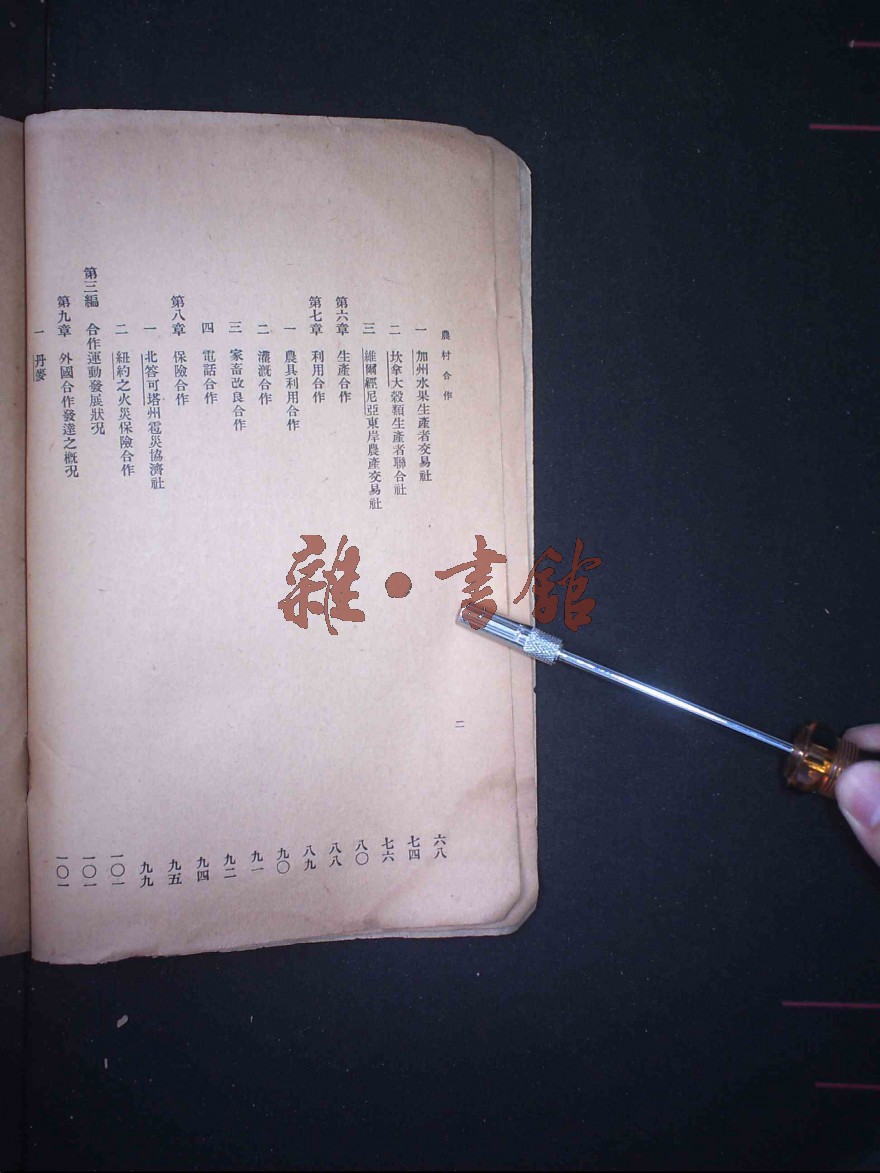 農村合作
二
一 加州水果生產者交易社 六八
二 坎拿大穀類生產者聯合社 七四
三 維爾經尼亞東岸農產交易社 七六
第六章 生產合作 八〇
第七章 利用合作 八八
一 農具利用合作 八九
二 灌溉合作 九〇
三 家畜改良合作 九一
四 電話合作 九二
第八章 保險合作 九四
一 北答可塔州雹災協濟社 九五
二 紐約之火災保險合作 九九
第三編 合作運動發展狀況 一〇一
第九章 外國合作發達之概況 一〇一
一 丹麥 一〇一
雜·書館